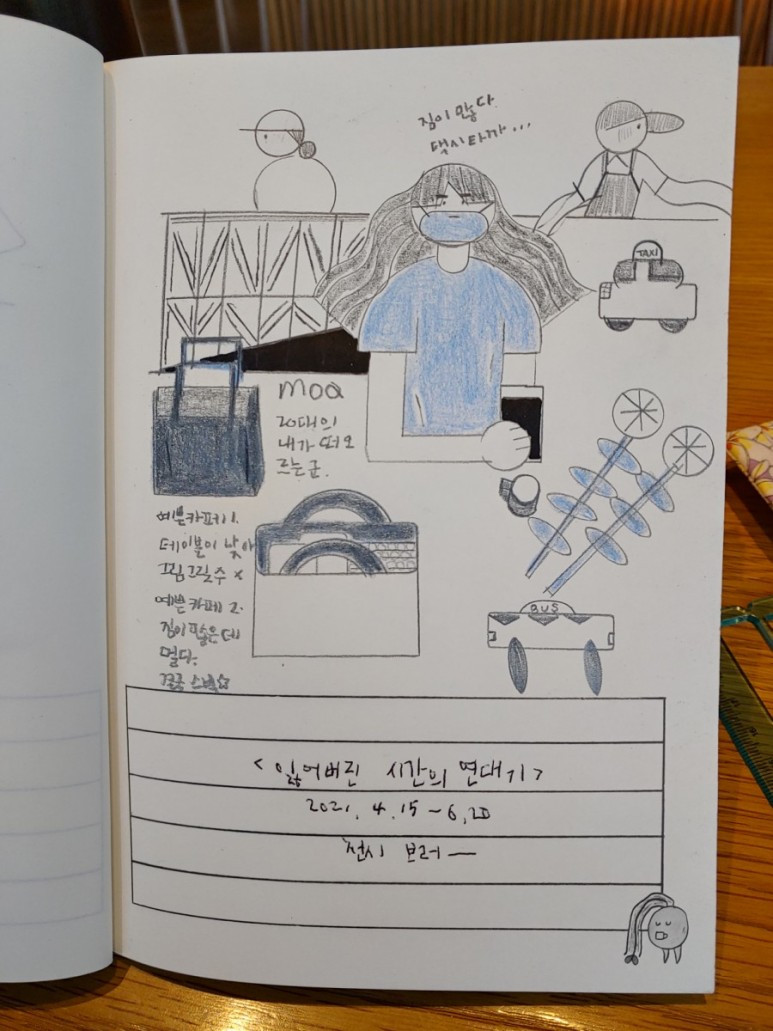 짐이 많다
택시타까...
TAXI
moa
20대의
내가 떠오
르는군.
예쁜카페1.
테이블이 낮아
그림그릴수 x
예쁜카페 2.
짐이많은데
멀다.
결국 스벅☆
BUS
<잃어버린 시간의 연대기>
2021. 4. 15 ~ 6. 20
전시 보러 —